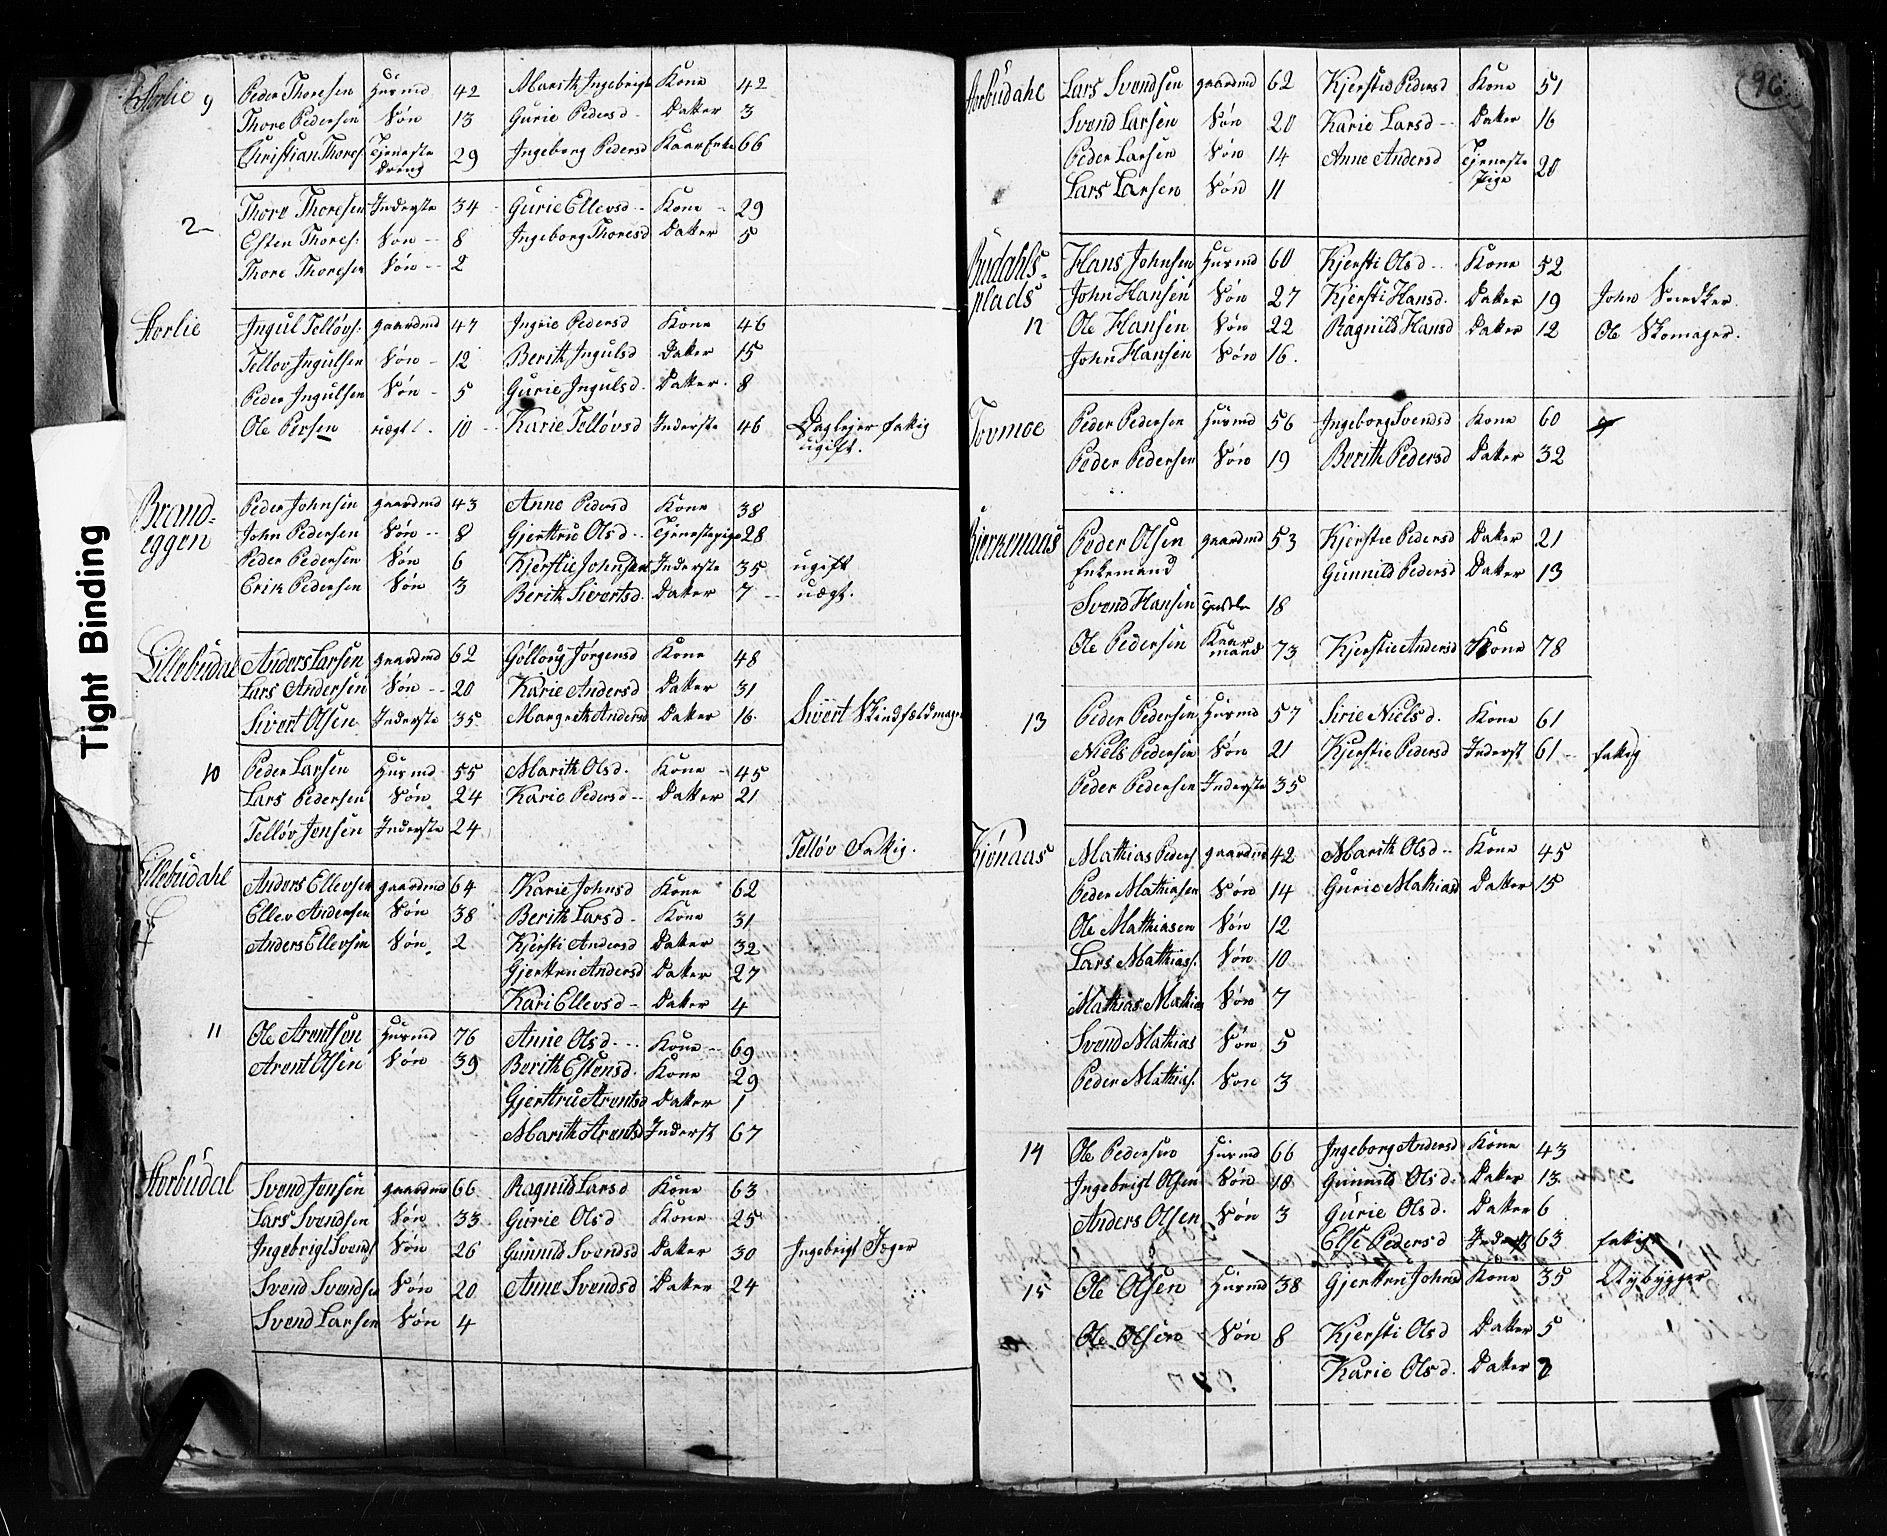 Tight Binding
Storlie 9 Peder Thoresen Husmd 42 Marith Ingebrigts Kone 42
Thore Pedersen Søn 13 Gurie Pedersd Datter 3
Christian Thores. Tjeneste Dreng 29 Ingeborg Pedersd Kaar Enke 66
2 Thore Thoresen Inderste 34 Gurie Ellevsd Kone 29
Esten Thores: Søn 8 Ingeborg Thoresd Datter 5
Thore Thoresen Søn 2
Storlie Ingul Telløvs. gaardmd 47 Ingrie Pedersd Kone 46
Telløv Ingulsen Søn 12 Berith Ingulsd Datter 15
Peder Ingulsen Søn 5 Gurie Ingulsd. Datter. 8
Ole Persen uægt. 10 Karie Telløvsd Inderste 46 Daglejer fattig
ugift.
Brand= Peder Johnsen gaardmd 43 Anne Pedersd Kone 38
eggen John Pedersen Søn 8 Gjertru Olsd Tjenestepige 28
Peder Pedersen Søn 6 Kjerstie Johnsen Inderste 35 ugift
Erik Pedersen Søn 3 Berith Sivertsd. Datter 7 uægt.
Lillebudal Anders Larsen gaardmd 62 Gølloug Jørgensd Kone 48
Lars Andersen Søn 20 Karie Andersd Datter 31
Sivert Olsen Inderste 35 Margrete Andersd Datter 16 Sivert Skindfældmager
10 Peder Larsen Husmd 55 Marith Olsd. Kone 45
Lars Pedersen Søn 24 Karie Pedersd Datter 21
Telløv Jensen Inderste 24
Telløv Fattig.
Lillebudahl Anders Ellevsen gaardmd 64 Karie Johnsd Kone 62
Ellev Andersen Søn 38 Berith Larsd Kone 31
Anders Ellevsen Søn 2 Kjersti Andersd Datter 32
Gjertru Andersd Datter 27
Kari Ellevsd Datter 4
11 Ole Arentsen Husmd 76 Anne Olsd Kone 69
Arent Olsen Søn 39 Berith Estensd. Kone 29
Gjertru Arentsd Datter 1
Marith Arentsd Inderst 67
Storbudal Svend Jensen gaardmd 66 Ragnild Larsd Kone 63
Lars Svendsen Søn 33 Gurie Olsd Kone 25
Ingebrigt Svends Søn 26 Gunnild Svendsd Datter 30 Ingebrigt Jæger
Svend Svendsen Søn 20 Anne Svendsd Datter 24
Svend Larsen Søn 4
96.
Storbudahl Lars Svendsen gaardmd 62 Kjerstie Pedersd Kone 51
Svend Larsen Søn 20 Karie Larsd Datter 16
Peder Larsen Søn 14 Anne Andersd Tjeneste Pige 20
Lars Larsen Søn 11
Budahls= Hans Johnsen Husmd 60 Kjersti Olsd Kone 52
plads John Hansen Søn 27 Kjersti Hansd. Datter 19 John Snedker
12 Ole Hansen Søn 22 Ragnild Hansd Datter 12 Ole Skomager.
John Hansen Søn 16.
Tovmoe Peder Pedersen Husmd 56 Ingeborg Svendsd Kone 60
Peder Pedersen Søn 19 Berith Pedersd Datter 32
Bjerkenaas Peder Olsen gaardmd 53 Kjerstie Pedersd Datter 21
Enkemand Gunnild Pedersd Datter 13
Svend Hansen 18
Ole Pedersen Kaarmand 73 Kjerstie Andersd Kone 78
13 Peder Pedersen Husmd 57 Sirie Nielsd. Kone 61
Niels Pedersen Søn 21 Kjerstie Pedersd Inderst 61 fattig
Peder Pedersen Inderste 35
Kjønaas Mathias Peders. gaardmd 42 Marith Olsd Kone 45
Peder Mathiasen Søn 14 Gurie Mathiasd Datter 15
Ole Mathiasen Søn 12
Lars Mathias. Søn 10
Mathias Mathias Søn 7
Svend Mathias Søn 5
Peder Mathias. Søn 3
14 Ole Pedersen Husmd 66 Ingeborg Andersd Kone 43
Ingebrigt Olsen Søn 10 Gunnild Olsd. Datter 13
Anders Olsen Søn 3 Gurie Olsd. Datter 6
Else Pedersd Inderst 63 fattig
15 Ole Olsen Husmd 38 Gjertru Johnsd Kone 35 Nybygger
Ole Olsen Søn 8 Kjersti Olsd Datter 5
Karie Olsd. Datter 2